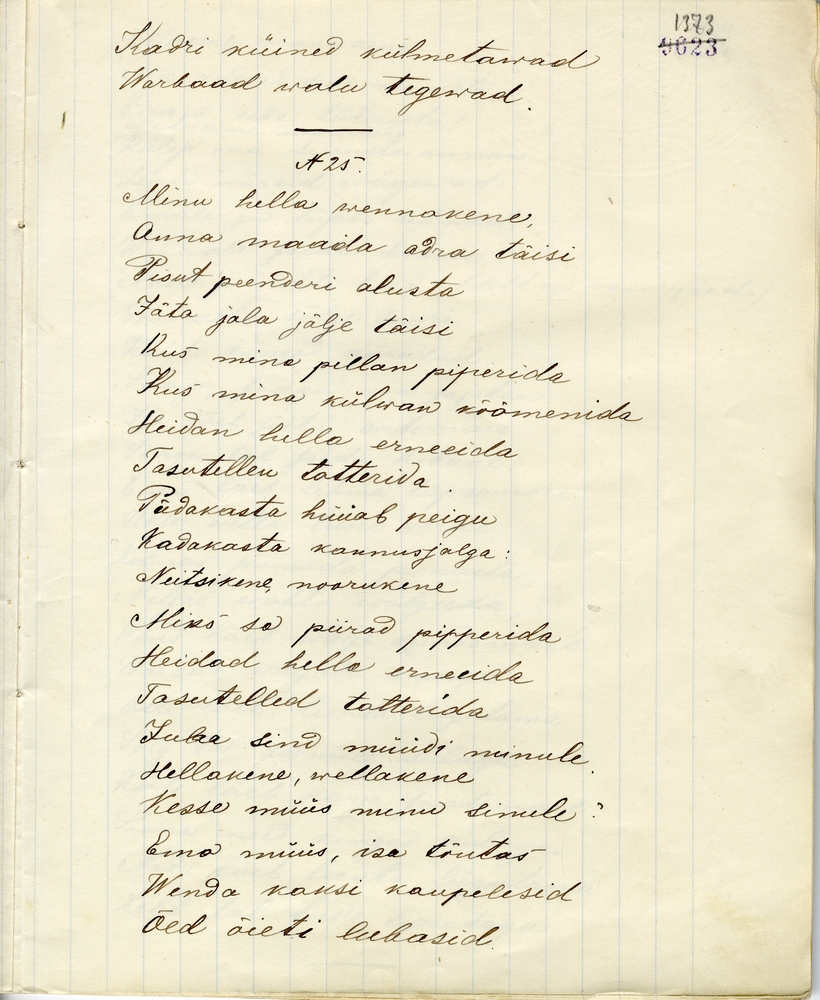 1373
9623
Kadri küined külmetawad
Warbaad walu tegewad.
N 25.
Minu hella wennakene,
Anna maaida adra täisi
Pisut peenderi alusta
Jäta jala jälje täisi
Kus mina pillan piperida
Kus mina külwan köömenida
Heidan hella erneeida
Tasutellen tatterida.
Pädakasta hüüab peigu
Kadakasta kannusjalga:
Neitsikene, noorukene
Miks sa piirad pipperida
Heidad hella erneeida
Tasutelled tatterida
Juba sind müüdi minule.
Hellakene, wellakene
Kesse müüs minu sinule?
Ema müüs, isa tõutas
Wenda kaksi kaupelesid
Õed õieti lubasid.